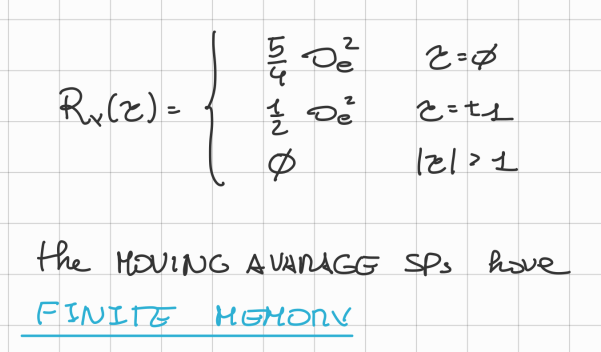 Rᵧ(τ) = { 5/4 σe² τ=∅
1/2 σe² τ=±1
∅ |τ| > 1
the MOVING AVARAGE SPs have
FINITE MEMORY